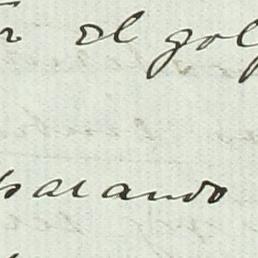 el gol
parando